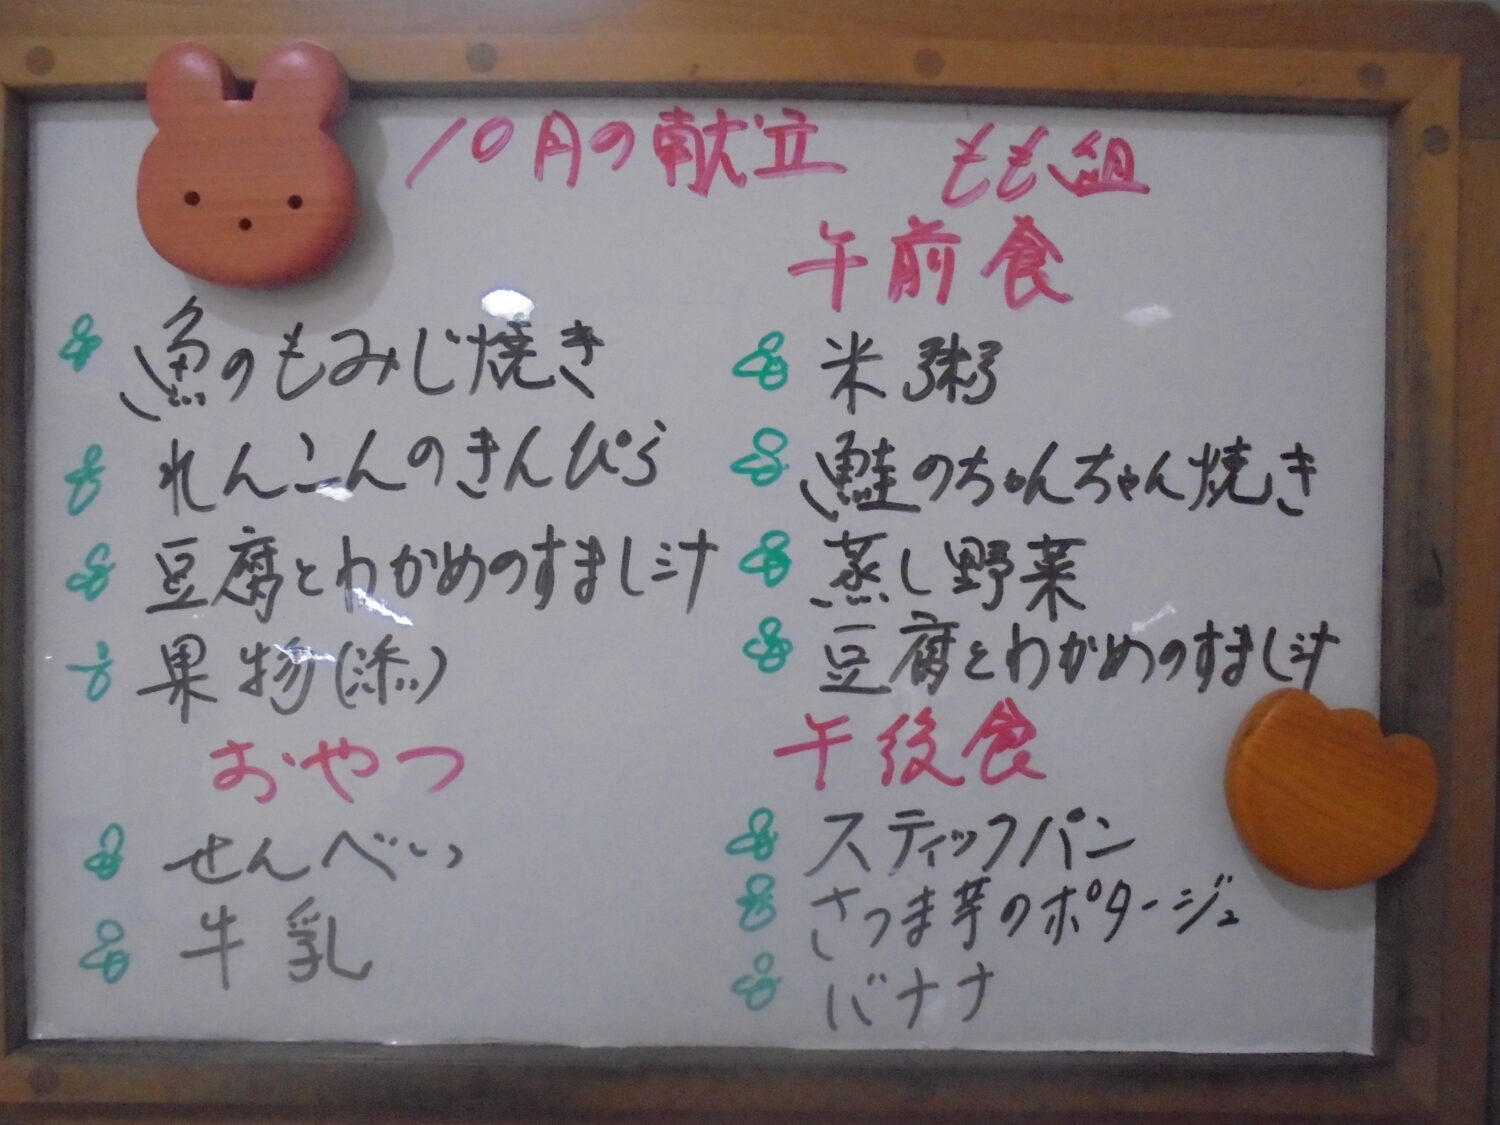 10月の献立
魚のもみじ焼き
れんこんのきんぴら
豆腐とわかめのすまし汁
果物(添)
おやつ
せんべい
牛乳
もも組
午前食
米粥
鮭のちゃんちゃん焼き
蒸し野菜
豆腐とわかめのすまし汁
午後食
スティックパン
さつま芋のポタージュ
バナナ